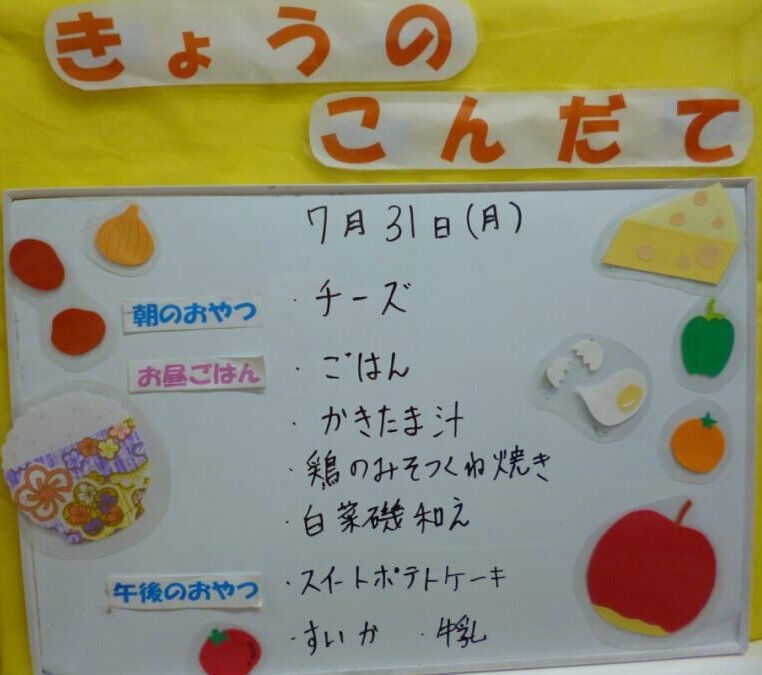 きょうの
こんだて
7月31日(月)
朝のおやつ ・チーズ
お昼ごはん ・ごはん
・かきたま汁
・鶏のみそつくね焼き
・白菜磯和え
午後のおやつ ・スイートポテトケーキ
・すいか ・牛乳